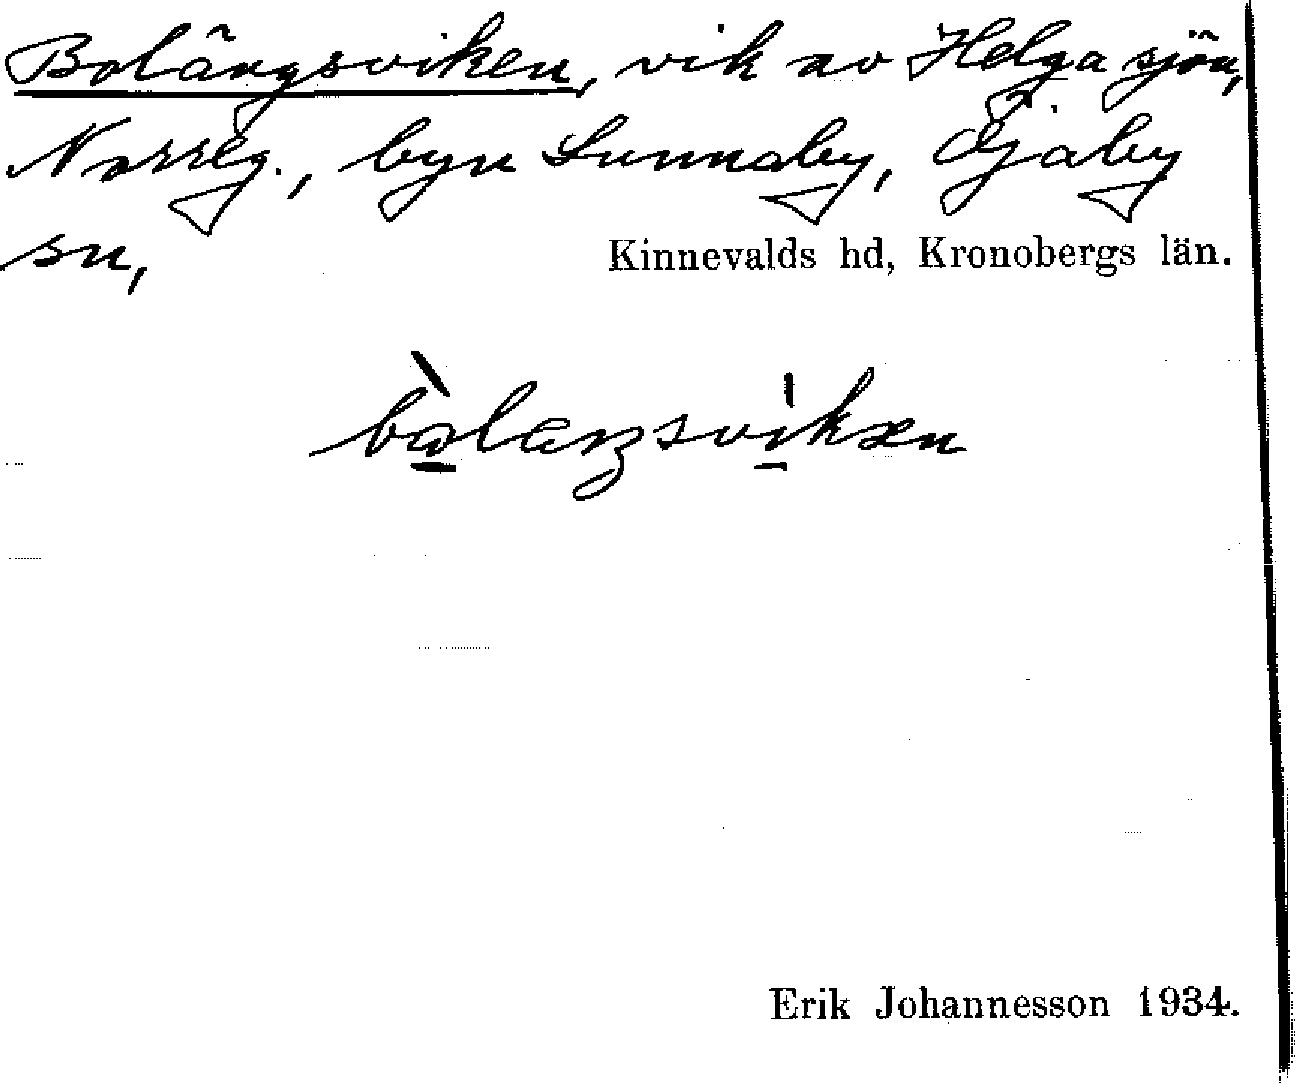 Bolängsviken, vik av Helgasjön,
Norreg., byn Lunnaby, Öjaby
sn,
Kinnevalds hd, Kronobergs län.
bòlæŋsvikæn
Erik Johannesson 1934.